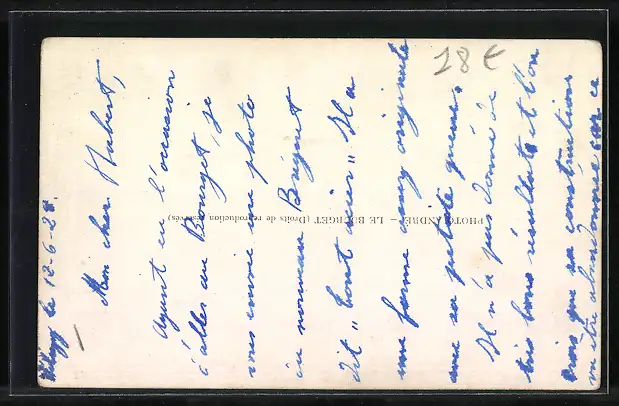 le 12-6-28.
Mon cher Hubert,
Ayant eu l'occasion
d'aller au Bourget, je
vous envoie une photo
du nouveau Breguet
dit "tout acier" Il a
une forme assez originale
avec sa petite queue,
Il n'a pas donné de
très bons résultats et l'on
que sa construction
être abandonnée car ce
PHOTO ANDRÉ - LE BOURGET (Droits de reproduction réservés)
18 €